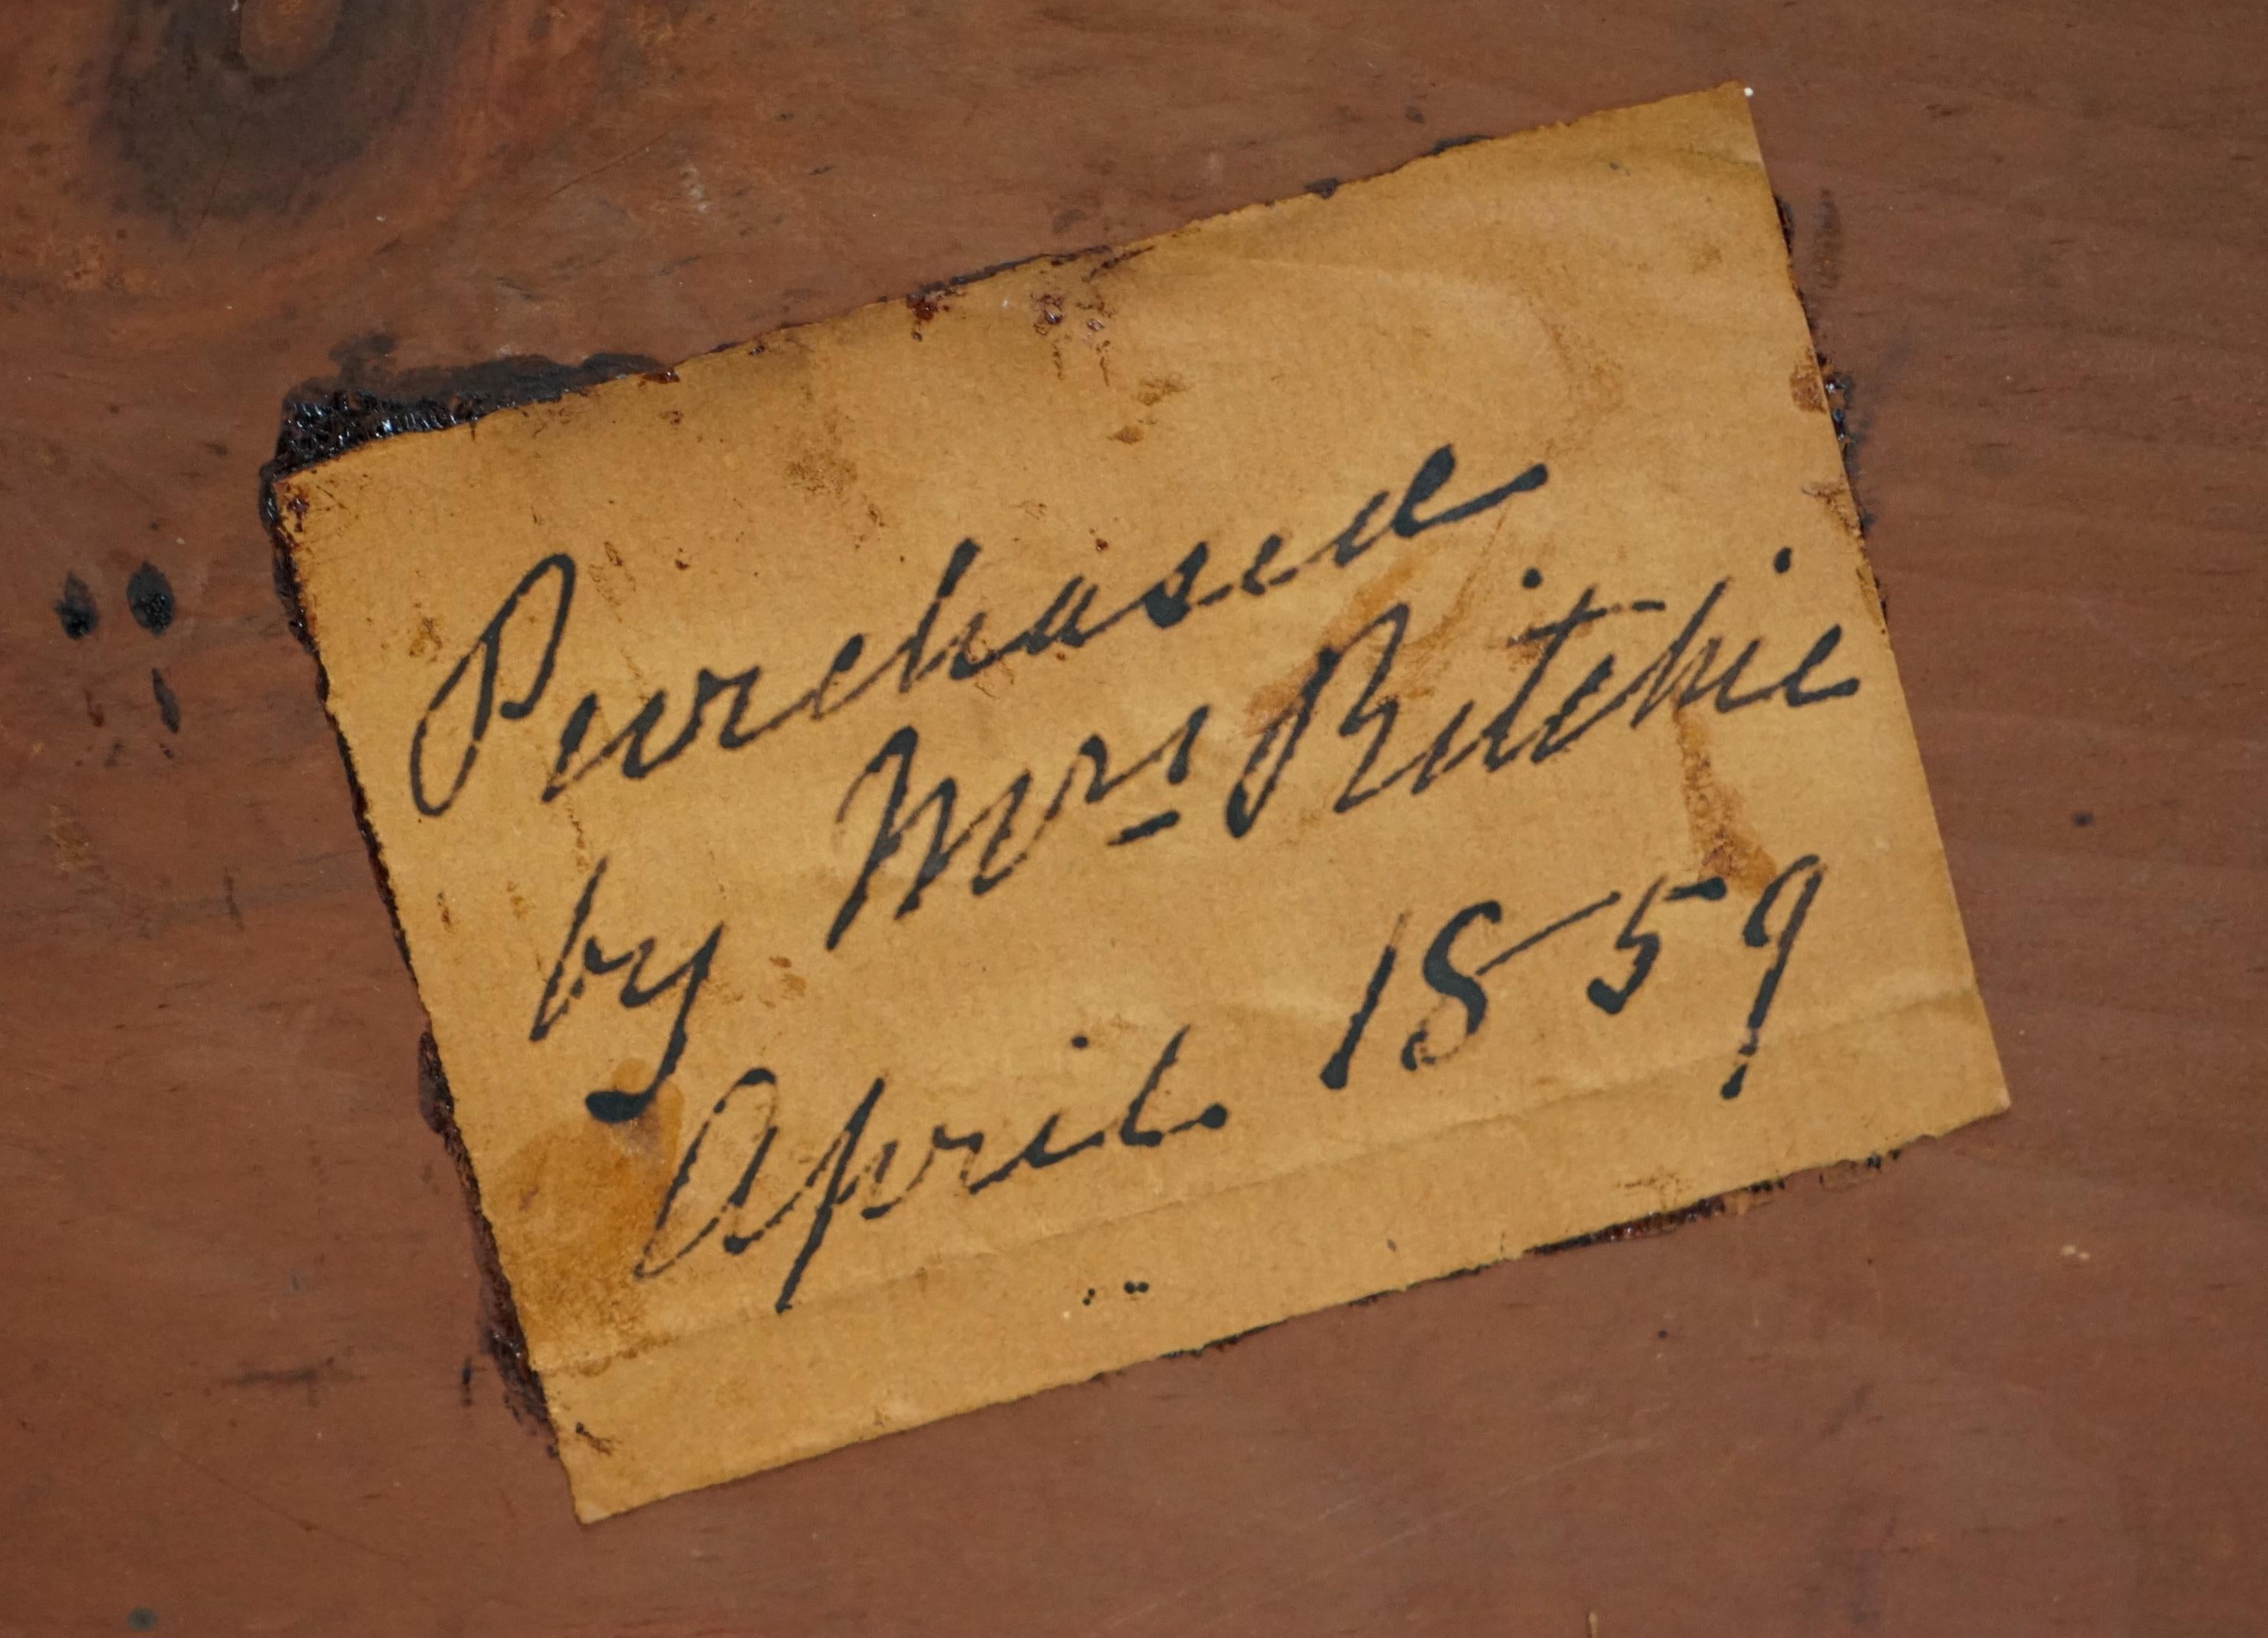 Purchased
by Mrs Ritchie
April 1859